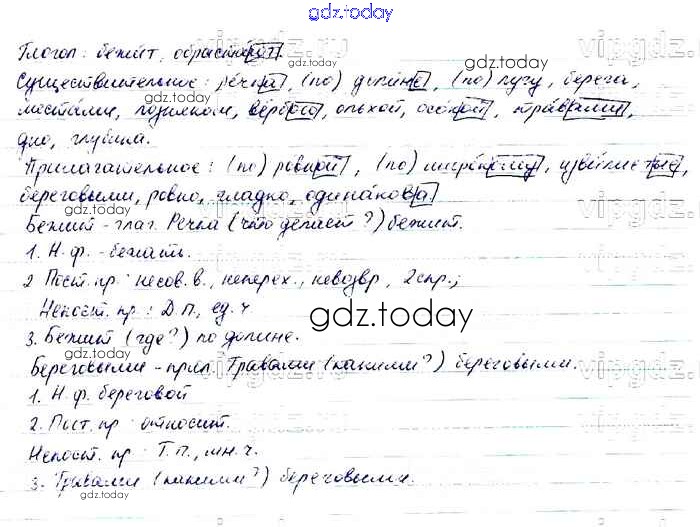 gdz.today
Глагол: бежит, обрастают.
Существительное: речка, (по) долине, (по) лугу, берега,
местами, лозняком, вербой, ольхой, осокой, травами,
дно, глубина.
Прилагательное: (по) ровной, (по) широкому, извилистые,
береговыми, ровно, гладко, одинакова.
Бежит - глаг. Речка (что делает?) бежит.
1. Н.ф. - бежать.
2 Пост. пр: несов. в., неперех., невозвр, 2 спр.;
Непост. пр: Д.п., ед. ч
3. Бежит (где?) по долине.
gdz.today
Береговыми - прил. Травами (какими?) береговыми.
1. Н.ф. береговой
2. Пост. пр: относит.
Непост. пр: Т.п., мн. ч.
3. Травами (какими?) береговыми.
gdz.today
vipgdz.ru